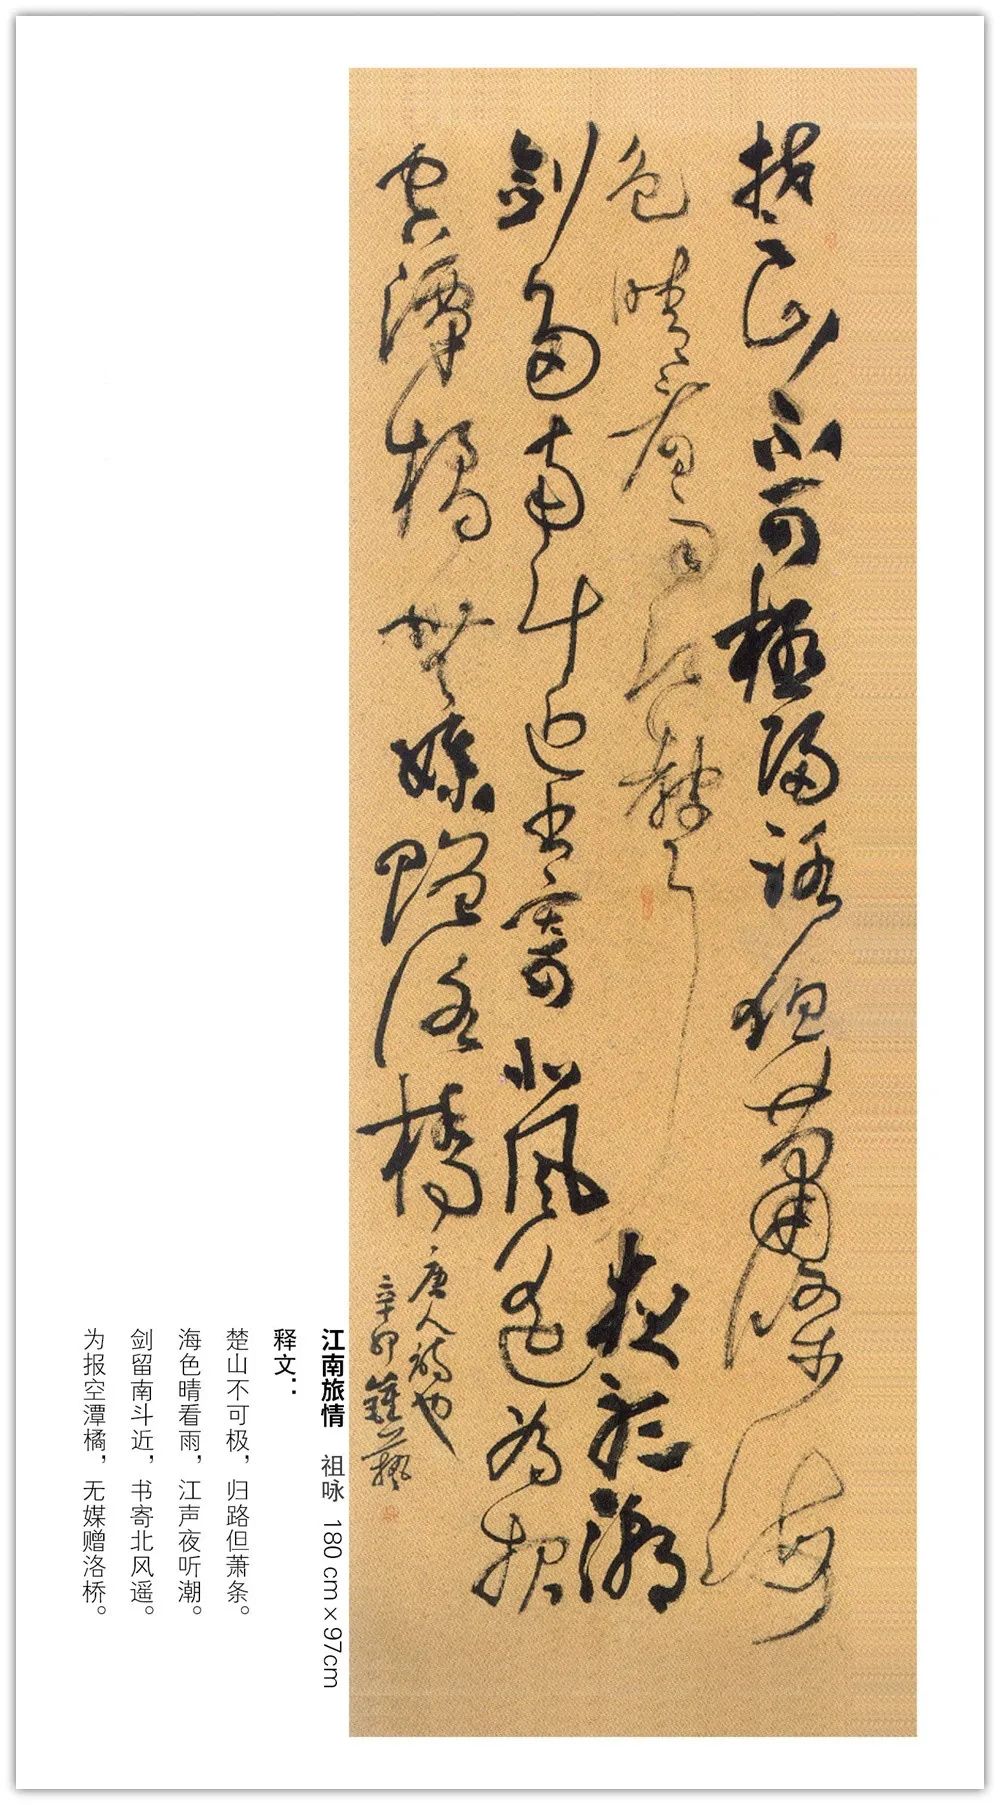 楚山不可極歸路但蕭條海
色晴看雨江聲夜聽潮
劍留南斗近書寄北風遙為報
空潭橘無媒贈洛橋
唐人詩也
辛卯
江南旅情 祖咏 180 cm×97cm
释文：
楚山不可极，归路但萧条。
海色晴看雨，江声夜听潮。
剑留南斗近，书寄北风遥。
为报空潭橘，无媒赠洛桥。